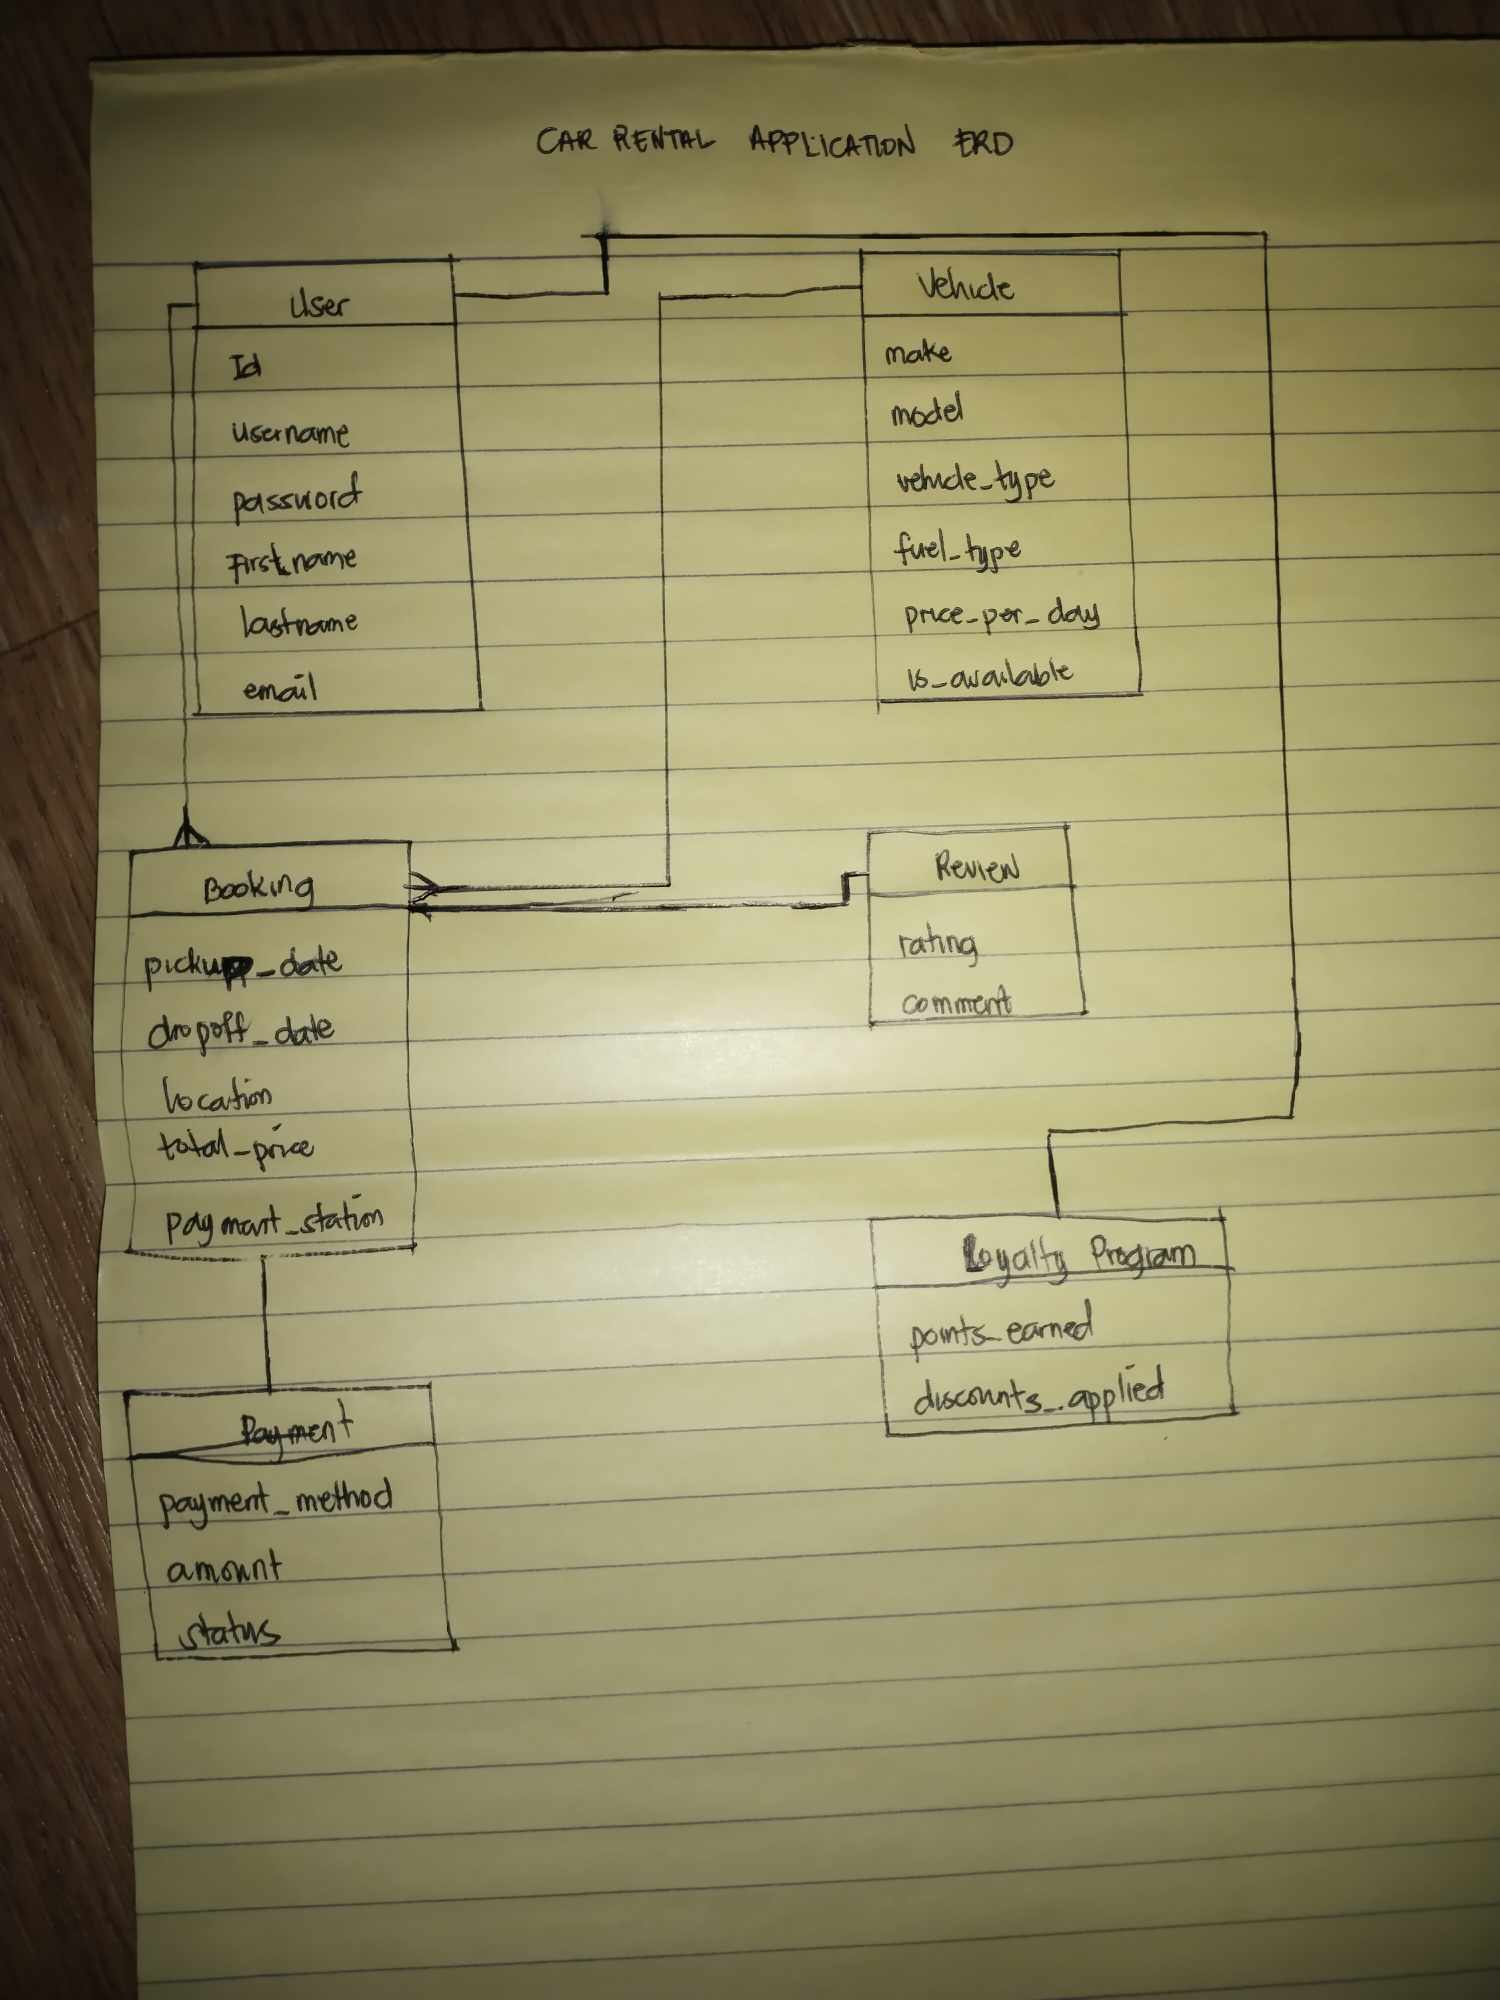 CAR RENTAL APPLICATION ERD
User
Id
username
password
First_name
lastname
email
Vehicle
make
model
vehicle_type
fuel_type
price_per_day
is_available
Booking
pickup_date
dropoff_date
location
total_price
payment_station
Review
rating
comment
Loyalty Program
points_earned
discounts_applied
Payment
payment_method
amount
status